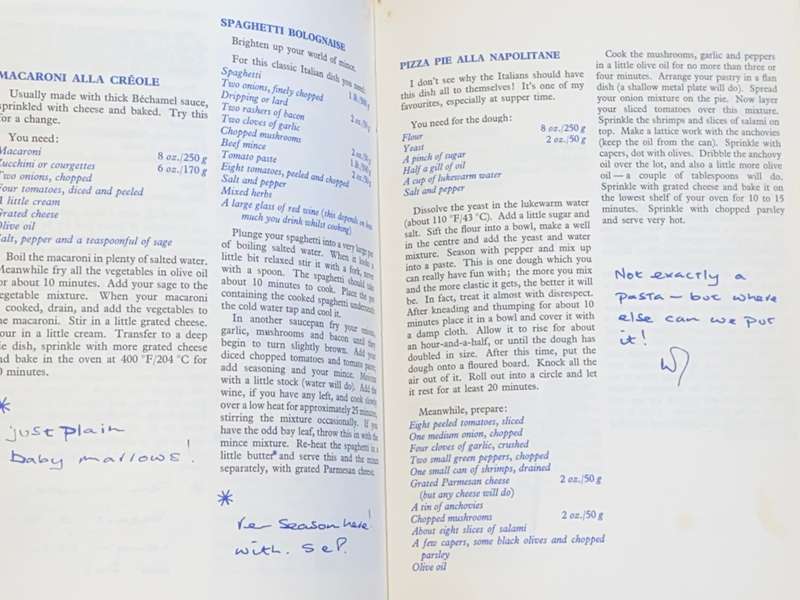 MACARONI ALLA CRÉOLE
Usually made with thick Béchamel sauce,
sprinkled with cheese and baked. Try this
for a change.
You need:
Macaroni 8 oz./250 g
Zucchini or courgettes 6 oz./170 g
Two onions, chopped
Four tomatoes, diced and peeled
A little cream
Grated cheese
Olive oil
Salt, pepper and a teaspoonful of sage
Boil the macaroni in plenty of salted water.
Meanwhile fry all the vegetables in olive oil
for about 10 minutes. Add your sage to the
vegetable mixture. When your macaroni
is cooked, drain, and add the vegetables to
the macaroni. Stir in a little grated cheese.
Pour in a little cream. Transfer to a deep
pie dish, sprinkle with more grated cheese
and bake in the oven at 400 °F/204 °C for
minutes.
*
just plain
baby marlows!
SPAGHETTI BOLOGNAISE
Brighten up your world of mince.
For this classic Italian dish you need:
Spaghetti 1 lb./500 g
Two onions, finely chopped
Dripping or lard 2 oz./50 g
Two rashers of bacon
Two cloves of garlic
Chopped mushrooms 2 oz./50 g
Beef mince 1 lb./500 g
Tomato paste 2 oz./50 g
Eight tomatoes, peeled and chopped
Salt and pepper
Mixed herbs
A large glass of red wine (this depends on how
much you drink whilst cooking)
Plunge your spaghetti into a very large pot
of boiling salted water. When it looks a
little bit relaxed stir it with a fork, not
with a spoon. The spaghetti should take
about 10 minutes to cook. Place the pot
containing the cooked spaghetti underneath
the cold water tap and cool it.
In another saucepan fry your onions,
garlic, mushrooms and bacon until they
begin to turn slightly brown. Add your
diced chopped tomatoes and tomato paste,
add seasoning and your mince. Moisten
with a little stock (water will do). Add the
wine, if you have any left, and cook slowly
over a low heat for approximately 25 minutes,
stirring the mixture occasionally. If you
have the odd bay leaf, throw this in with the
mince mixture. Re-heat the spaghetti in a
little butter* and serve this and the mince
separately, with grated Parmesan cheese.
*
re-season here!
with. S & P.
PIZZA PIE ALLA NAPOLITANE
I don't see why the Italians should have
this dish all to themselves! It's one of my
favourites, especially at supper time.
You need for the dough:
Flour 8 oz./250 g
Yeast 2 oz./50 g
A pinch of sugar
Half a gill of oil
A cup of lukewarm water
Salt and pepper
Dissolve the yeast in the lukewarm water
(about 110 °F/43 °C). Add a little sugar and
salt. Sift the flour into a bowl, make a well
in the centre and add the yeast and water
mixture. Season with pepper and mix up
into a paste. This is one dough which you
can really have fun with; the more you mix
and the more elastic it gets, the better it will
be. In fact, treat it almost with disrespect.
After kneading and thumping for about 10
minutes place it in a bowl and cover it with
a damp cloth. Allow it to rise for about
an hour-and-a-half, or until the dough has
doubled in size. After this time, put the
dough onto a floured board. Knock all the
air out of it. Roll out into a circle and let
it rest for at least 20 minutes.
Meanwhile, prepare:
Eight peeled tomatoes, sliced
One medium onion, chopped
Four cloves of garlic, crushed
Two small green peppers, chopped
One small can of shrimps, drained
Grated Parmesan cheese 2 oz./50 g
(but any cheese will do)
A tin of anchovies
Chopped mushrooms 2 oz./50 g
About eight slices of salami
A few capers, some black olives and chopped
parsley
Olive oil
Cook the mushrooms, garlic and peppers
in a little olive oil for no more than three or
four minutes. Arrange your pastry in a flan
dish (a shallow metal plate will do). Spread
your onion mixture on the pie. Now layer
your sliced tomatoes over this mixture.
Sprinkle the shrimps and slices of salami on
top. Make a lattice work with the anchovies
(keep the oil from the can). Sprinkle with
capers, dot with olives. Dribble the anchovy
oil over the lot, and also a little more olive
oil — a couple of tablespoons will do.
Sprinkle with grated cheese and bake it on
the lowest shelf of your oven for 10 to 15
minutes. Sprinkle with chopped parsley
and serve very hot.
Not exactly a
pasta — but where
else can we put
it!